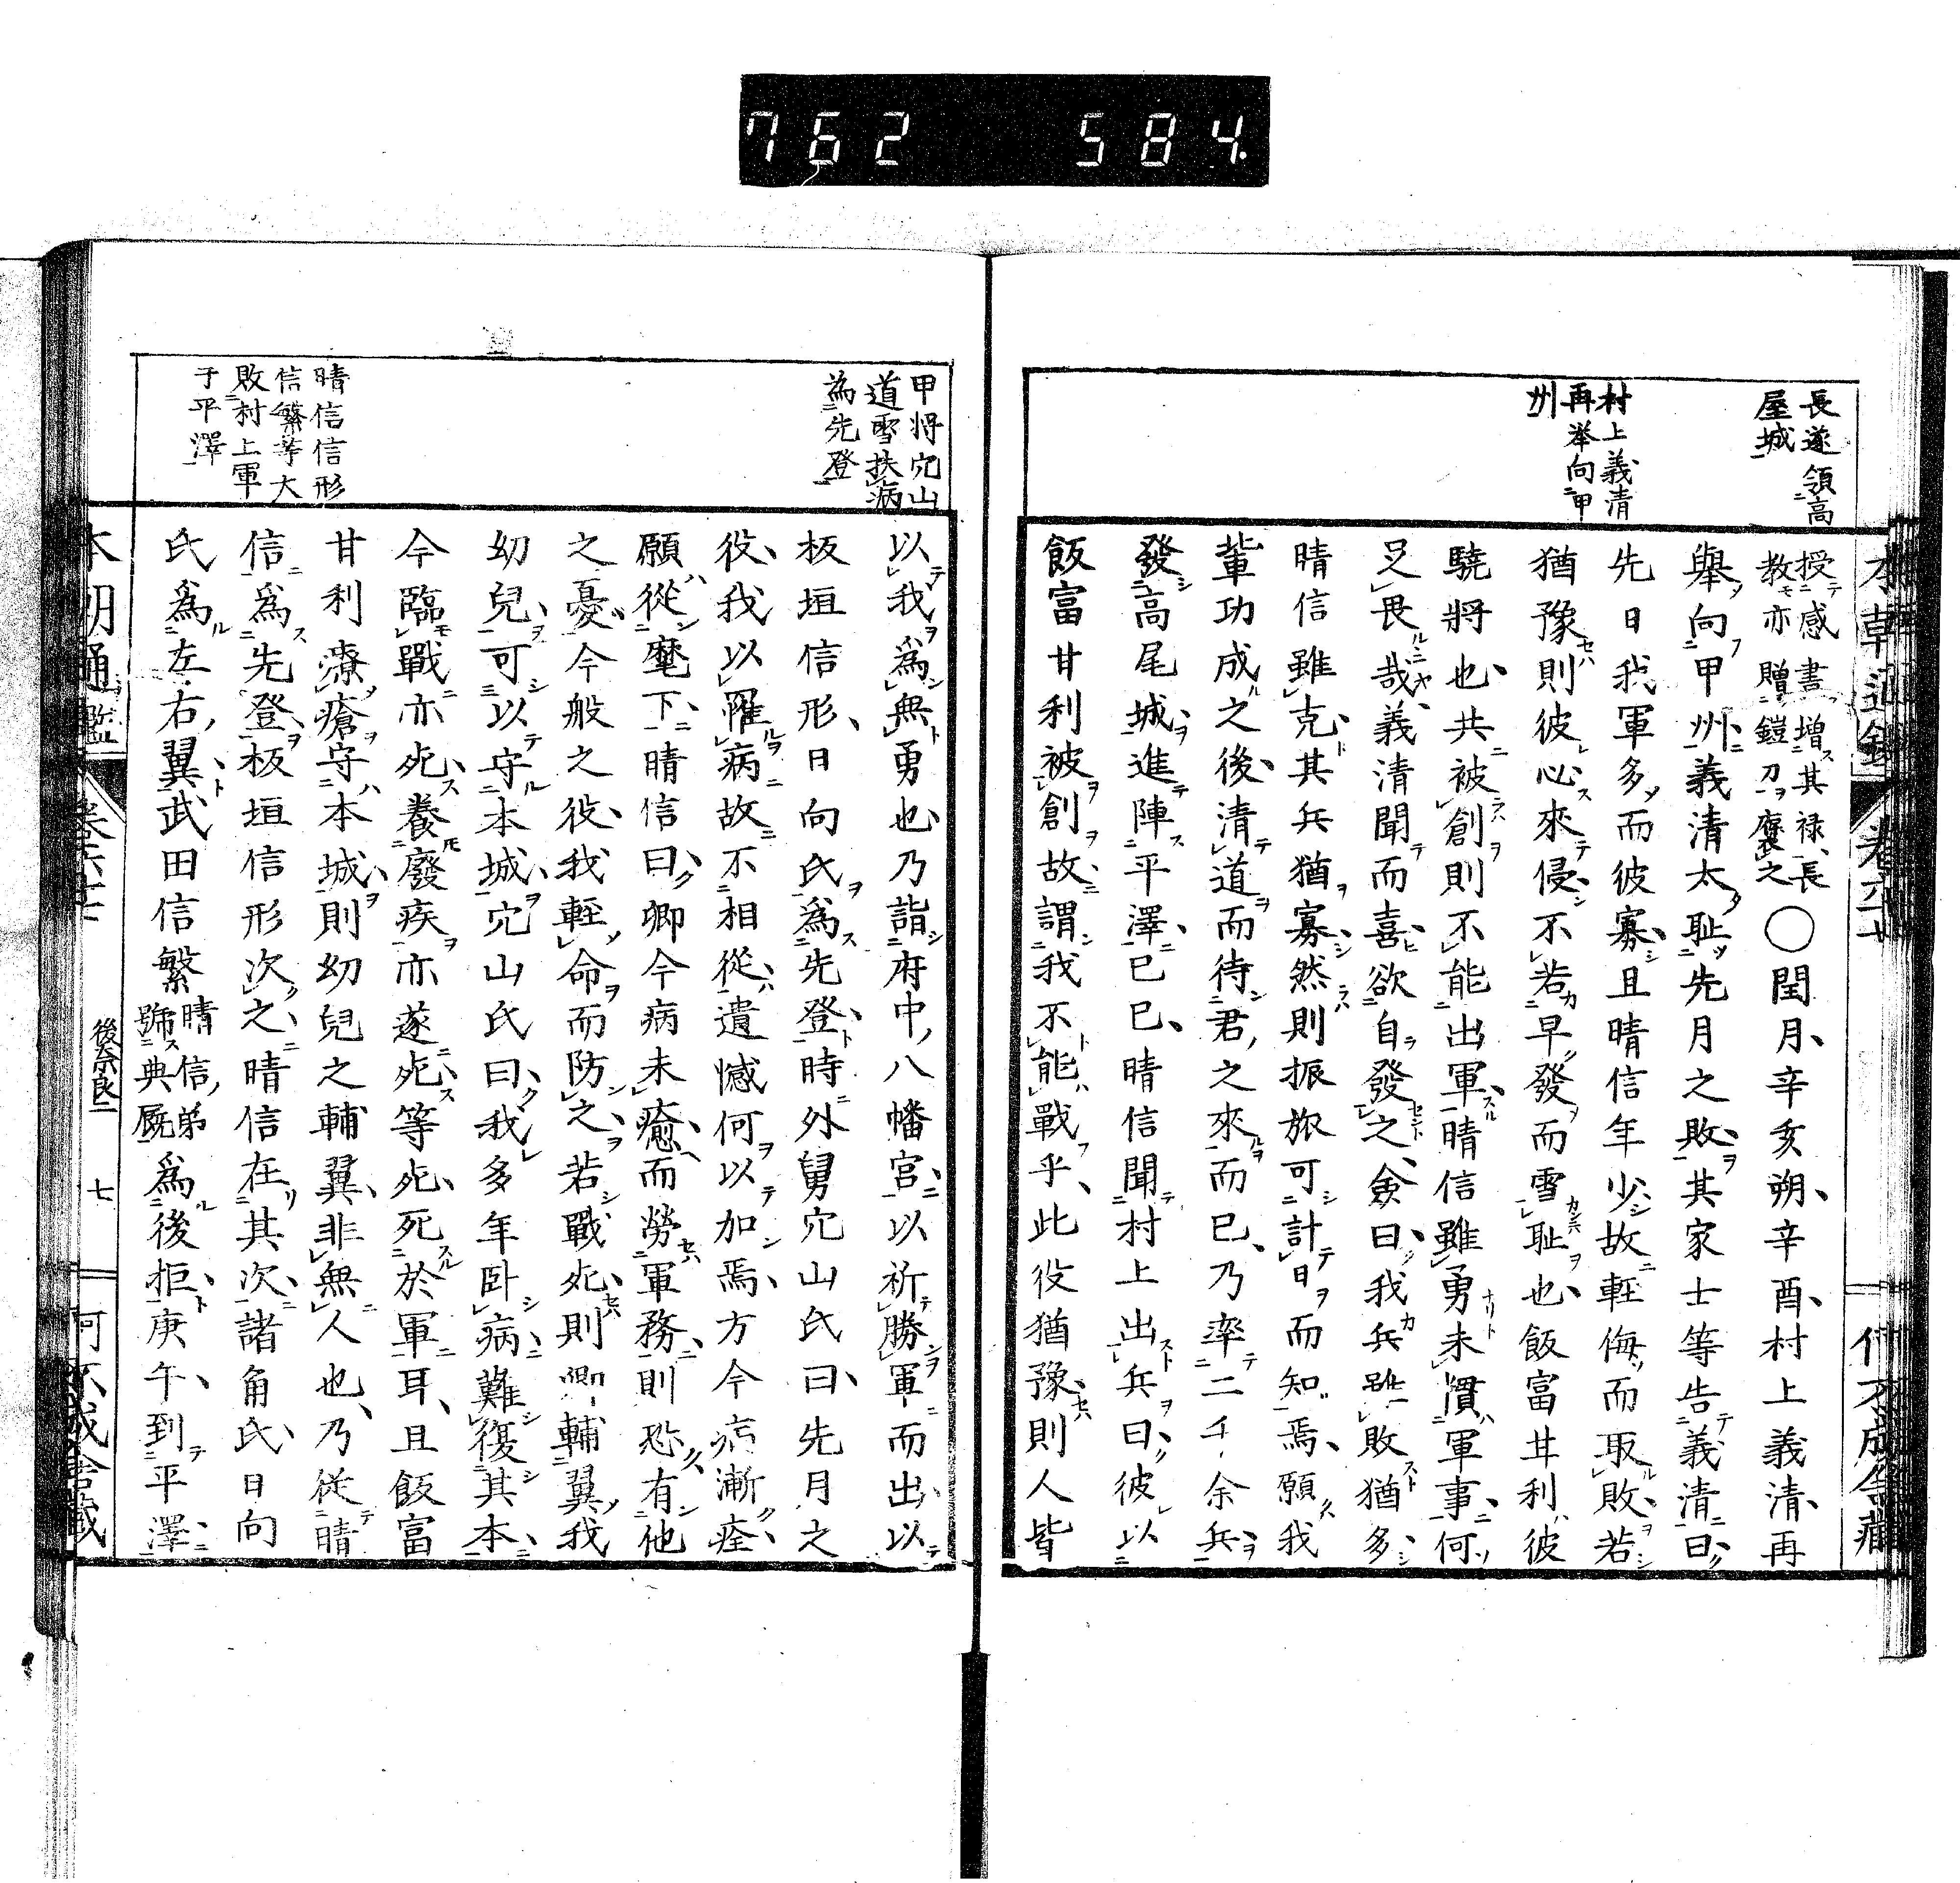 762 584
長遂領高
屋城
村上義清
再挙向甲
州
授感書増其禄長
教亦贈鎧刀褒之
○閏月辛亥朔辛酉村上義清再
舉向甲州義清太恥先月之敗其家士等告義清曰
先日我軍多而彼寡且晴信年少故輕侮而取敗若
猶豫則彼必來侵不若早發而雪恥也飯富甘利彼
驍將也共被創則不能出軍晴信雖勇未慣軍事何
足畏哉義清聞而喜欲自發之僉曰我兵雖敗猶多
晴信雖克其兵猶寡然則振旅可計日而知焉願我
輩功成之後清道而待君之來而已乃率二千余兵
發高尾城進陣平澤已巳晴信聞村上出兵曰彼以
飯富甘利被創故謂我不能戰乎此役猶豫則人皆
甲将穴山
道雪扶病
為先登
晴信信形
信繁等大
敗村上軍
于平澤
以我爲無勇也乃詣府中八幡宮以祈勝軍而出以
板垣信形日向氏爲先登時外舅穴山氏曰先月之
役我以罹病故不相從遺憾何以加焉方今病漸痊
願從麾下晴信曰卿今病未癒而勞軍務則恐有他
之憂今般之役我輕命而防之若戰死則卿輔翼我
幼兒可以守本城穴山氏曰我多年卧病難復其本
今臨戰亦死養廢疾亦遂死等死死於軍耳且飯富
甘利療瘡守本城則幼兒之輔翼非無人也乃從晴
信爲先登板垣信形次之晴信在其次諸角氏日向
氏爲左右翼武田信繁
晴信弟
號典厩
爲後拒庚午到平澤
本朝通鑑
後奈良二
七
何不成舎蔵